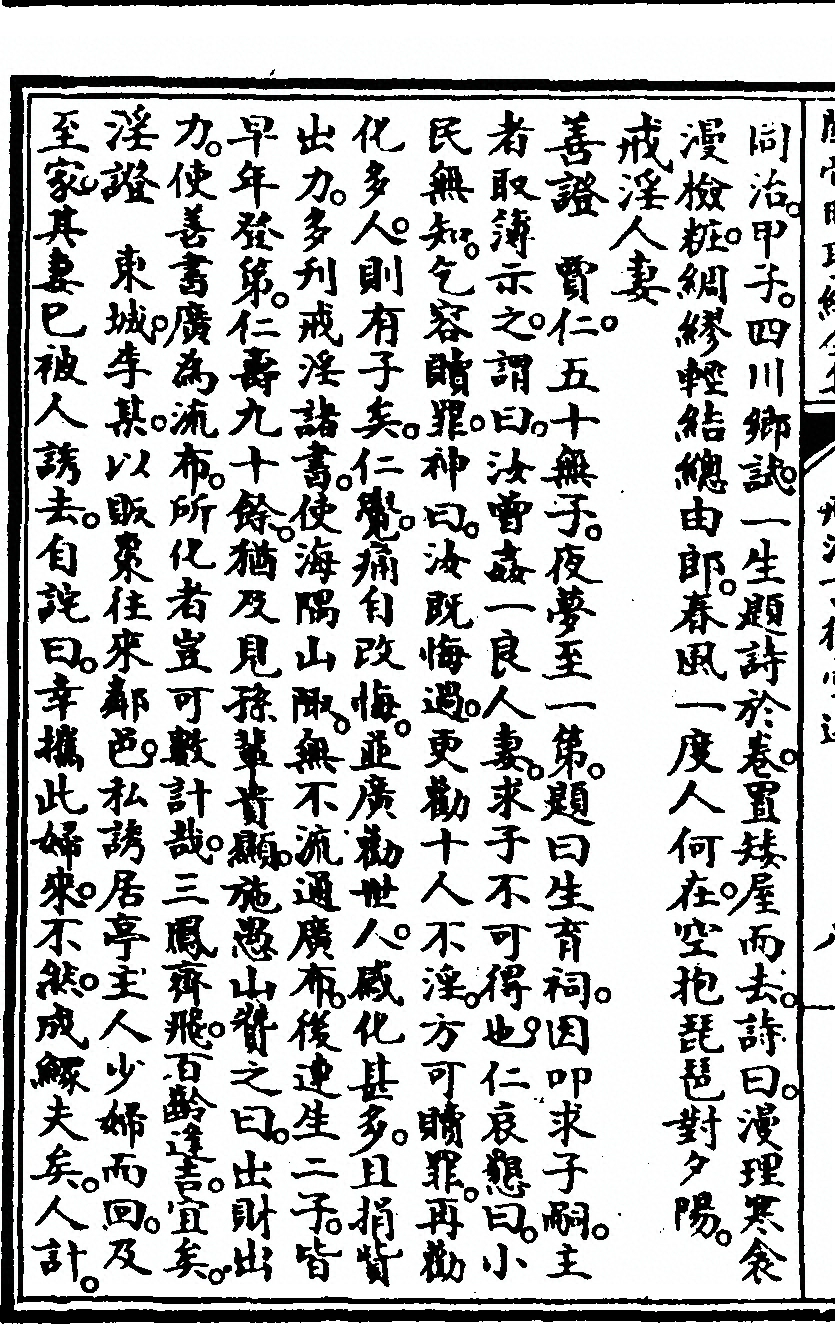 同治。甲子。四川鄉試。一生題詩於卷。置矮屋而去。詩曰。漫理寒衾
漫檢粧。綢繆輕結總由郎。春風一度人何在。空抱琵琶對夕陽。
戒淫人妻
善證　賈仁。五十無子。夜夢至一第。題曰生育祠。因叩求子嗣。主
者取簿示之。謂曰。汝曾姦一良人妻。求子不可得也。仁哀懇曰。小
民無知。乞容贖罪。神曰。汝既悔過。更勸十人不淫。方可贖罪。再勸
化多人。則有子矣。仁覺。痛自改悔。並廣勸世人。感化甚多。且捐貲
出力。多刋戒淫諸書。使海隅山陬。無不流通廣布。後連生二子。皆
早年登第。仁壽九十餘。猶及見孫輩貴顯。施愚山贊之曰。出財出
力。使善書廣為流布。所化者豈可數計哉。三鳳齊飛。百齡逢吉。宜矣。
淫證　東城。李某。以販棗往來鄰邑。私誘居亭主人少婦而回。及
至家。其妻已被人誘去。自詫曰。幸攜此婦來。不然。成鰥夫矣。人計。